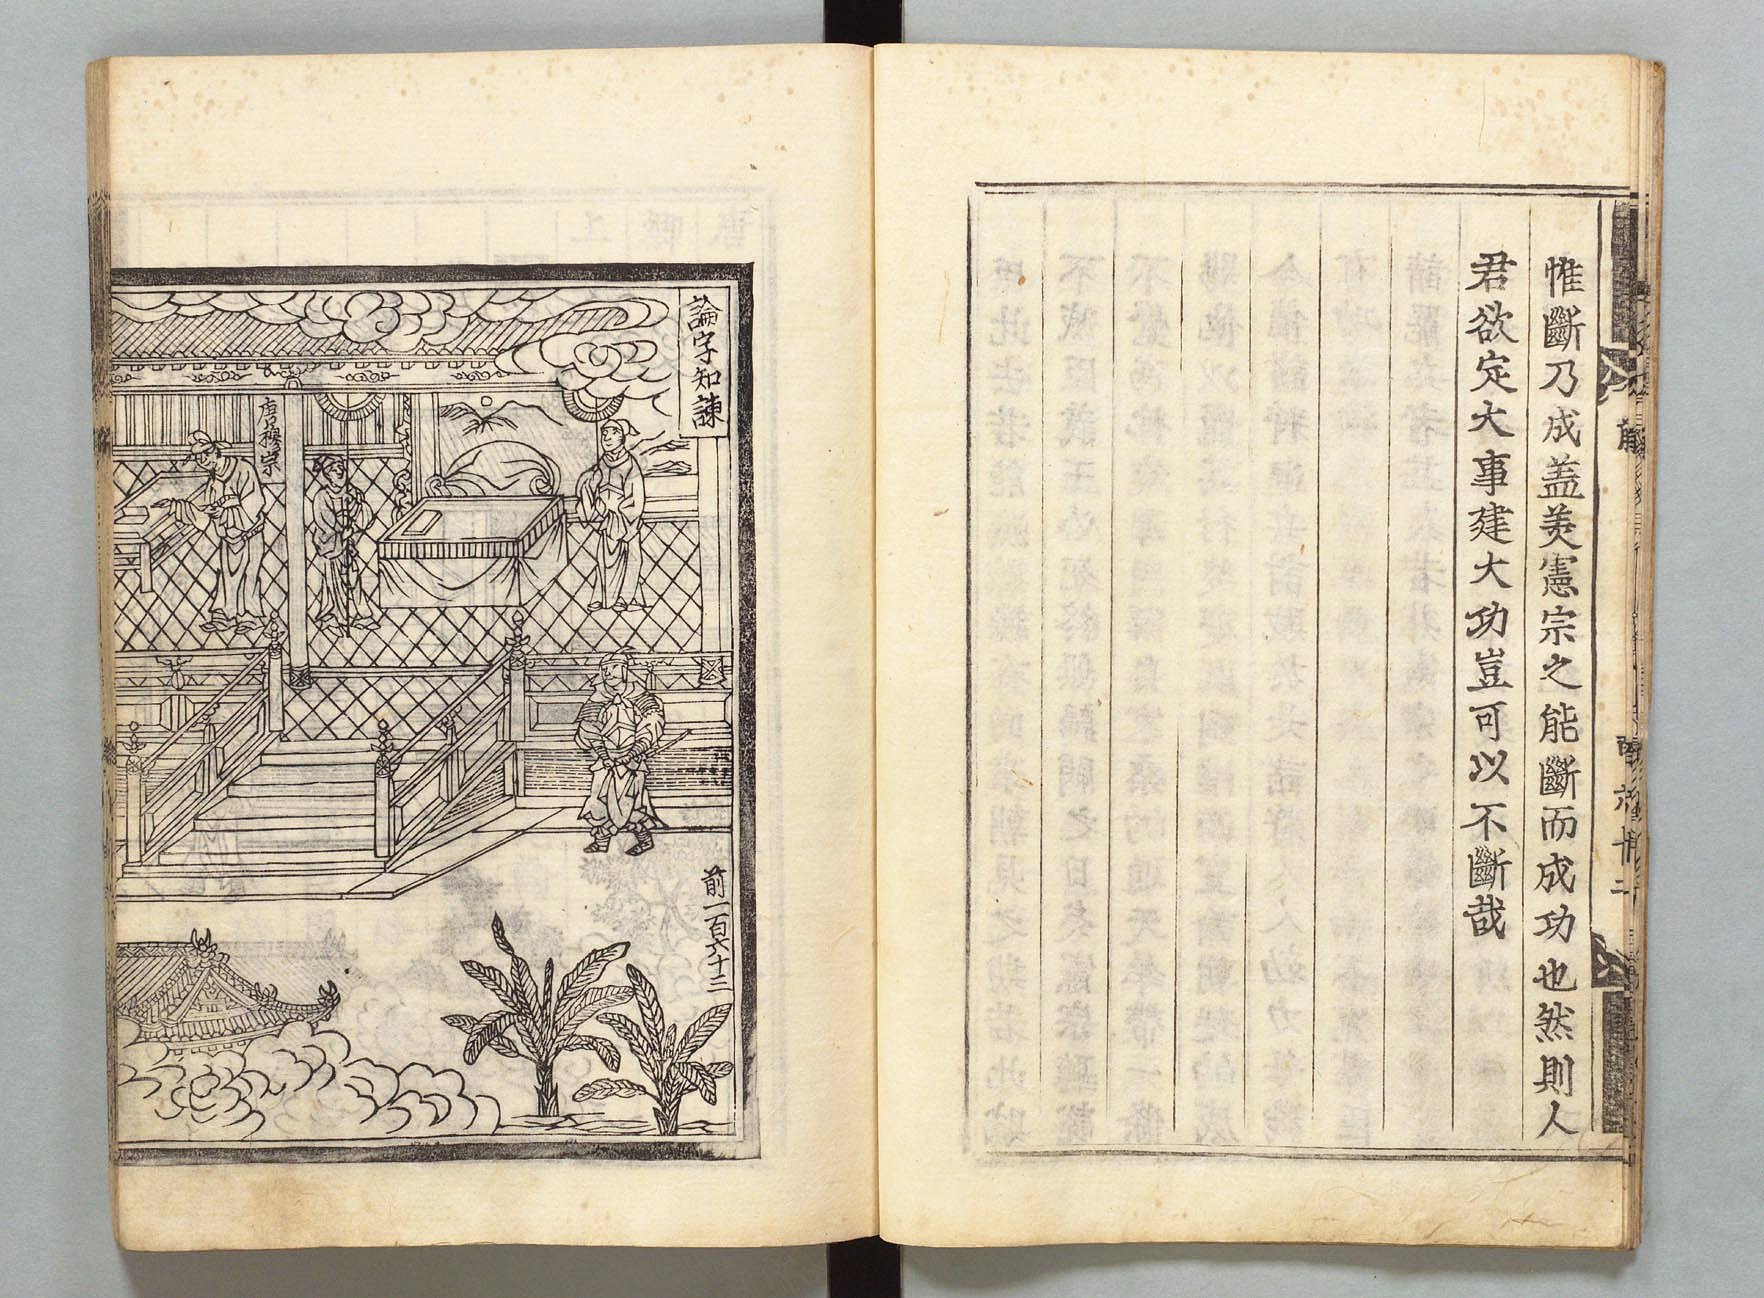 惟斷乃成蓋美憲宗之能斷而成功也然則人
君欲定大事建大功豈可以不斷哉
論字知諫
唐穆宗
前一百六十三